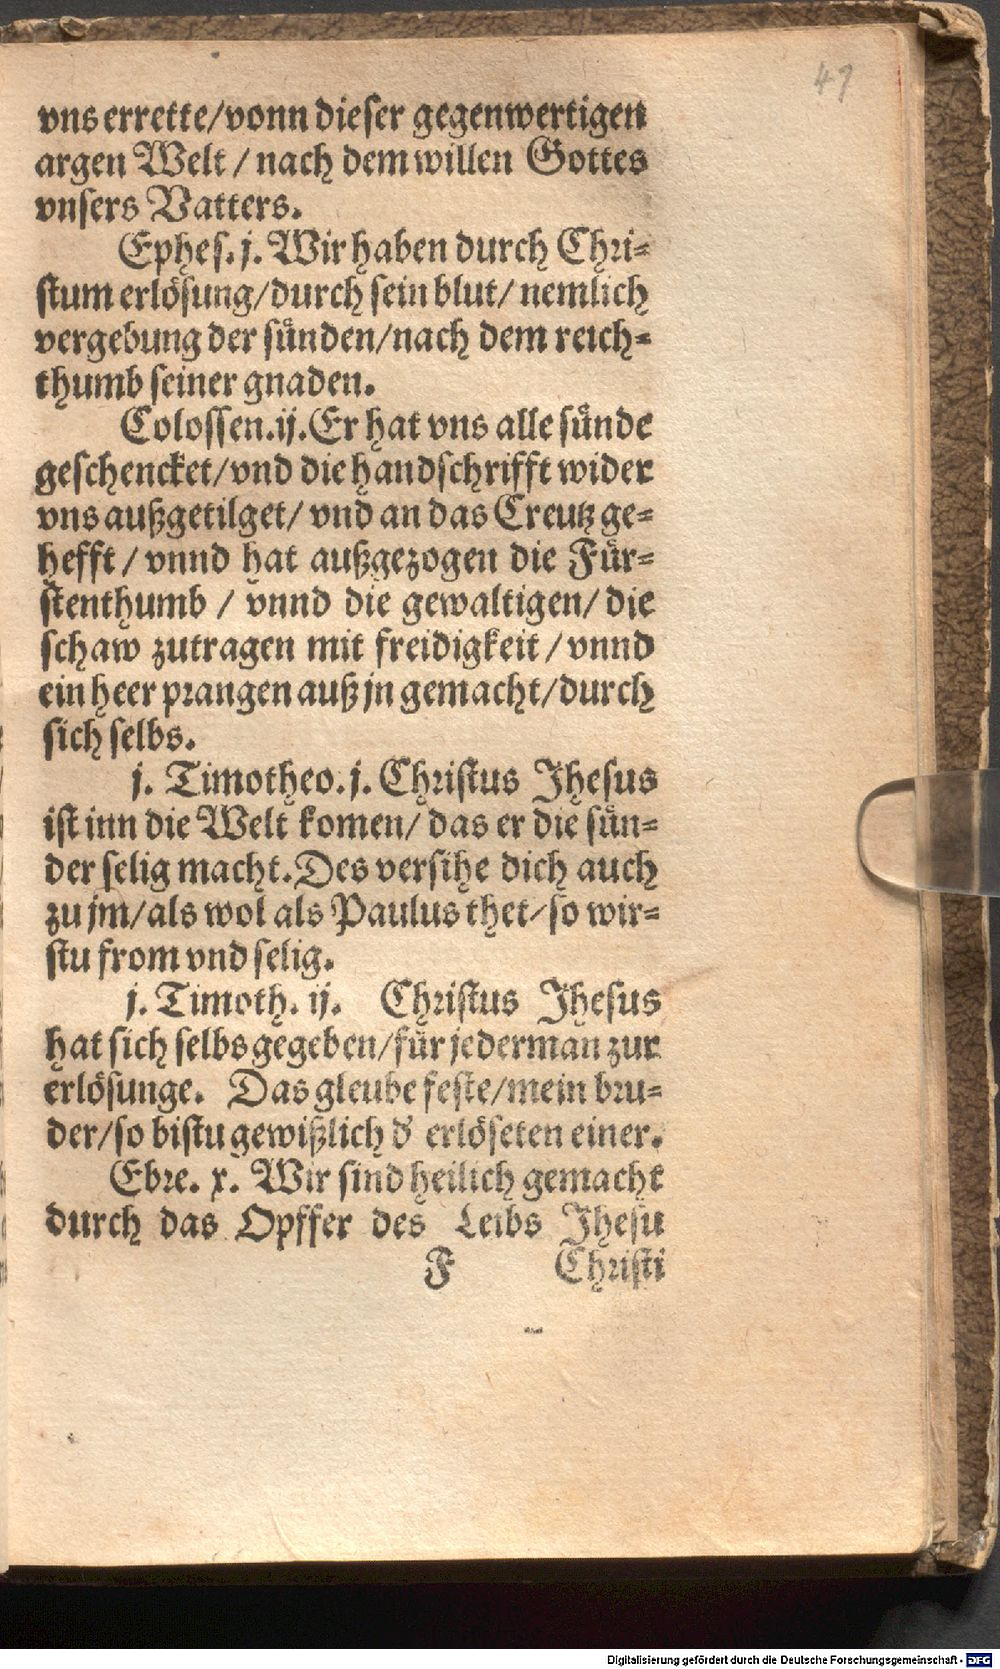 41
vns errette/vonn dieser gegenwertigen
argen Welt / nach dem willen Gottes
vnsers Vatters.
Ephes. j. Wir haben durch Chri-
stum erlösung/durch sein blut/ nemlich
vergebung der sünden/nach dem reich-
thumb seiner gnaden.
Colossen.ij. Er hat vns alle sünde
geschencket/vnd die handschrifft wider
vns außgetilget/ vnd an das Creutz ge-
hefft / vnnd hat außgezogen die Für-
stenthumb / vnnd die gewaltigen/ die
schaw zutragen mit freidigkeit / vnnd
ein heer prangen auß jn gemacht/durch
sich selbs.
j. Timotheo. j. Christus Jhesus
ist inn die Welt komen/ das er die sün-
der selig macht. Des versihe dich auch
zu jm/als wol als Paulus thet/so wir-
stu from vnd selig.
j. Timoth. ij. Christus Jhesus
hat sich selbs gegeben/für jederman zur
erlösunge. Das gleube feste/mein bru-
der/so bistu gewißlich d' erlöseten einer.
Ebre. x. Wir sind heilich gemacht
durch das Opffer des Leibs Jhesu
F Christi
Digitalisierung gefördert durch die Deutsche Forschungsgemeinschaft - DFG